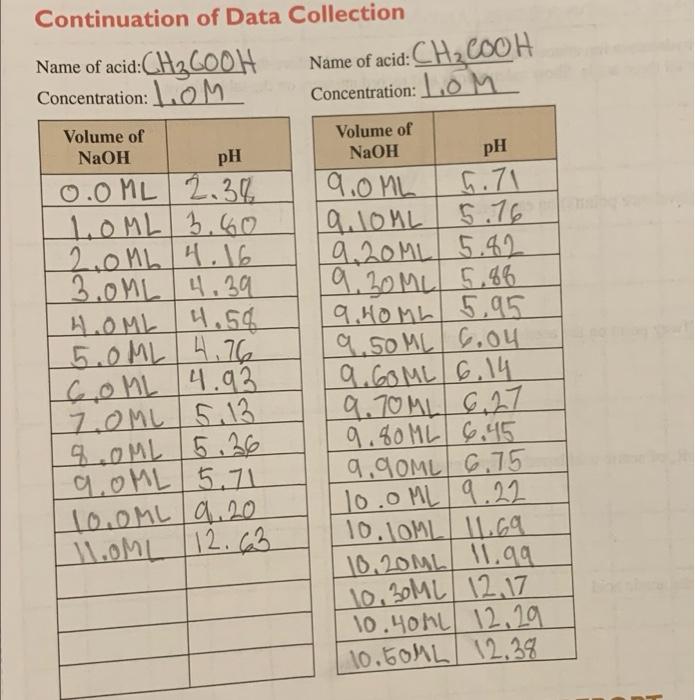 Continuation of Data Collection
Name of acid: CH3COOH
Concentration: 1.0M
Volume of NaOH pH
0.0 ML 2.38
1.0 ML 3.80
2.0ML 4.16
3.0ML 4.39
4.0ML 4.58
5.0ML 4.76
6.0ML 4.93
7.0ML 5.13
8.0ML 5.36
9.0ML 5.71
10.0ML 9.20
11.0ML 12.63
Name of acid: CH3COOH
Concentration: 1.0M
Volume of NaOH pH
9.0ML 5.71
9.10ML 5.76
9.20ML 5.82
9.30ML 5.88
9.40ML 5.95
9.50ML 6.04
9.60ML 6.14
9.70ML 6.27
9.80ML 6.45
9.90ML 6.75
10.0ML 9.22
10.10ML 11.69
10.20ML 11.99
10.30ML 12.17
10.40ML 12.29
10.50ML 12.38